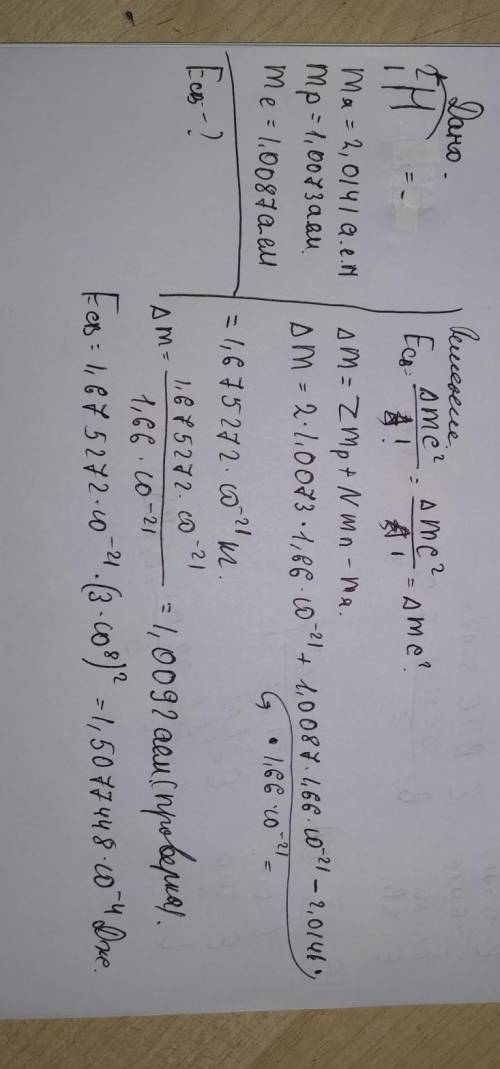 Дано:
²₁H = -
mя = 2,0141 а.е.м
mp = 1,0073 аем.
me = 1,0087 аем
Eсв - ?
Решение.
Eсв = Δmc²/1 = Δmc²/1 = Δmc².
Δm = Zmp + Nmn - mя.
Δm = 2·1,0073·1,66·10⁻²¹ + 1,0087·1,66·10⁻²¹ - 2,0141·
↳ ·1,66·10⁻²¹ =
= 1,675272·10⁻²¹ кг.
Δm = 1,675272·10⁻²¹ / 1,66·10⁻²¹ = 1,0092 аем (проверка).
Eсв = 1,675272·10⁻²¹·(3·10⁸)² = 1,5077448·10⁻⁴ Дж.